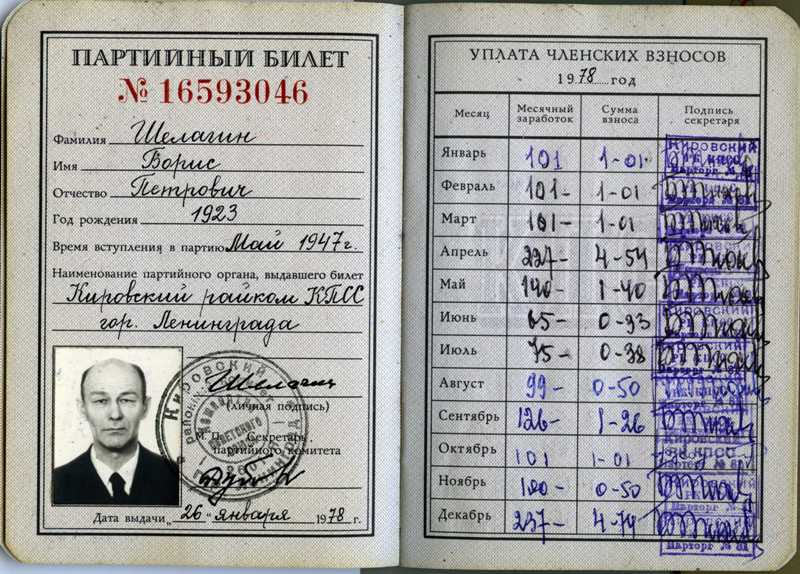 ПАРТИЙНЫЙ БИЛЕТ
№ 16593046
Фамилия Шелагин
Имя Борис
Отчество Петрович
Год рождения 1923
Время вступления в партию Май 1947 г.
Наименование партийного органа, выдавшего билет
Кировский райком КПСС
гор. Ленинграда
(личная подпись)
М. П. Секретарь
партийного комитета
Дата выдачи „26“ января 1978 г.
УПЛАТА ЧЛЕНСКИХ ВЗНОСОВ
1978 год
Месяц Месячный заработок Сумма взноса Подпись секретаря
Январь 101 1-01
Февраль 101- 1-01
Март 101- 1-01
Апрель 227- 4-54
Май 140- 1-40
Июнь 0-93
Июль 75- 0-38
Август 99- 0-50
Сентябрь 126- 1-26
Октябрь 101 1-01
Ноябрь 100- 0-50
Декабрь 237- 4-74